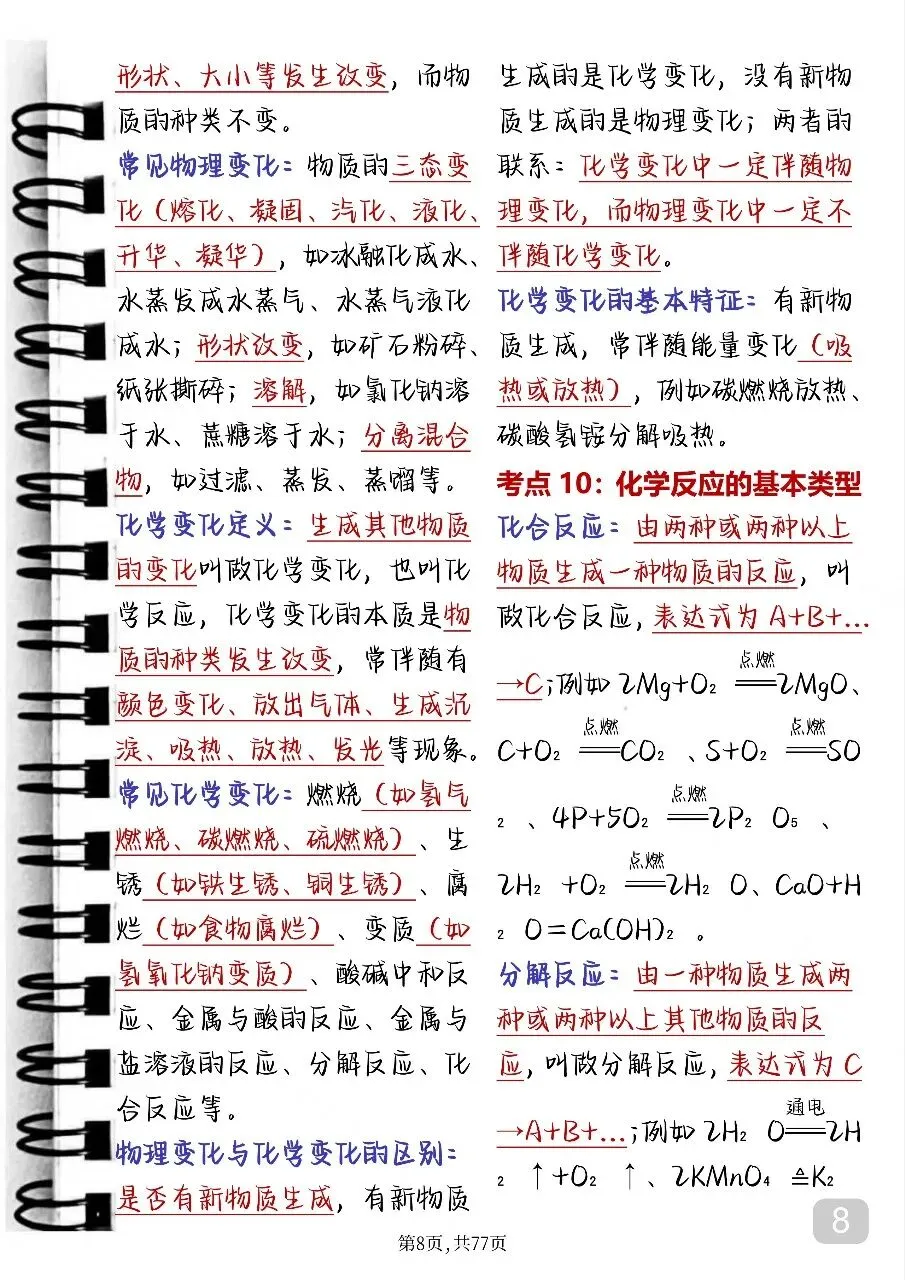 形状、大小等发生改变，而物
质的种类不变。
常见物理变化：物质的三态变
化（熔化、凝固、汽化、液化、
升华、凝华），如冰融化成水、
水蒸发成水蒸气、水蒸气液化
成水；形状改变，如矿石粉碎、
纸张撕碎；溶解，如氯化钠溶
于水、蔗糖溶于水；分离混合
物，如过滤、蒸发、蒸馏等。
化学变化定义：生成其他物质
的变化叫做化学变化，也叫化
学反应，化学变化的本质是物
质的种类发生改变，常伴随有
颜色变化、放出气体、生成沉
淀、吸热、放热、发光等现象。
常见化学变化：燃烧（如氢气
燃烧、碳燃烧、硫燃烧）、生
锈（如铁生锈、铜生锈）、腐
烂（如食物腐烂）、变质（如
氢氧化钠变质）、酸碱中和反
应、金属与酸的反应、金属与
盐溶液的反应、分解反应、化
合反应等。
物理变化与化学变化的区别：
是否有新物质生成，有新物质
生成的是化学变化，没有新物
质生成的是物理变化；两者的
联系：化学变化中一定伴随物
理变化，而物理变化中一定不
伴随化学变化。
化学变化的基本特征：有新物
质生成，常伴随能量变化（吸
热或放热），例如碳燃烧放热、
碳酸氢铵分解吸热。
考点 10：化学反应的基本类型
化合反应：由两种或两种以上
物质生成一种物质的反应，叫
做化合反应，表达式为 A+B+…
→C；例如 2Mg+O₂ 点燃══2MgO、
C+O₂ 点燃══CO₂ 、S+O₂ 点燃══SO
₂ 、4P+5O₂ 点燃══2P₂ O₅ 、
2H₂ +O₂ 点燃══2H₂ O、CaO+H
₂ O＝Ca(OH)₂ 。
分解反应：由一种物质生成两
种或两种以上其他物质的反
应，叫做分解反应，表达式为 C
→A+B+…；例如 2H₂ O通电══2H
₂ ↑+O₂ ↑、2KMnO₄ ≙K₂
8
第8页，共77页